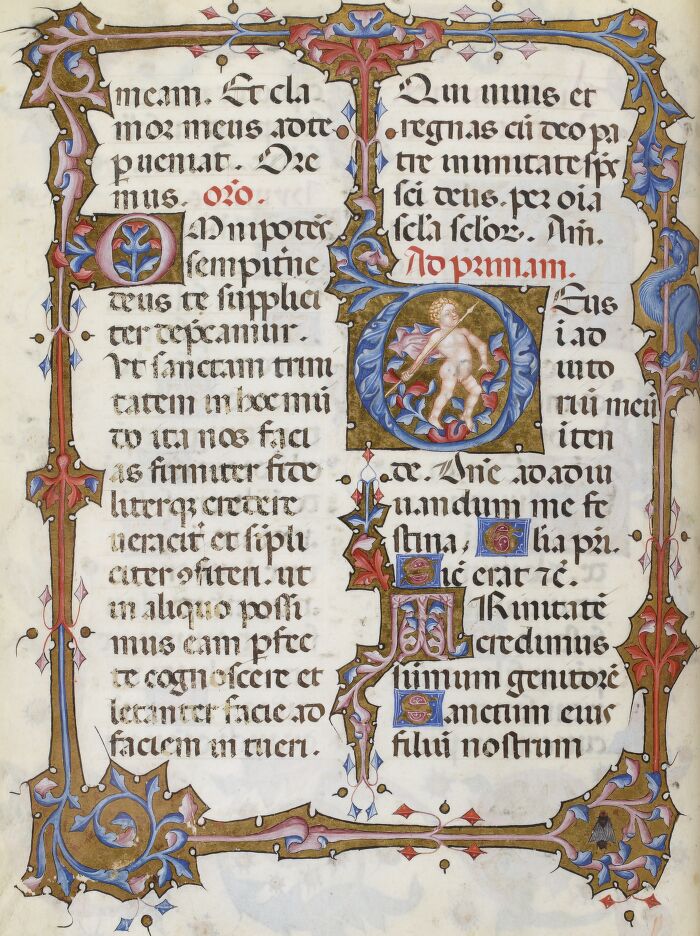 meam. Et cla
mor meus ad te
pueniat. Ore
mus. oro.
Omnipotēs
sempit̄ne
deus te supplici
ter dep̄camur.
Vt sanctam trini
tatem in hoc mū
do ita nos faci
as firmiter fide
literqꝫ credere
veracit̄ et sīpli
citer ꝯfiteri. ut
in aliquo possi
mus eam ꝑfec
te cognoscere et
letanter facie ad
faciem in tueri.
Qui viuis et
regnas cū deo pa
tre in unitate sp̄s
sc̄i deus. per oīa
sc̄la sc̄lor. Am̄.
Ad primam.
Deus
i ad
iuto
riū meū
iten
de. Dn̄e ad adiu
uandum me fe
stina, Glīa pr̄i.
Sic̄ erat ⁊c̄.
TRinitatē
credimus
sūmum genitorē
Sanctum eius
filium nostrum